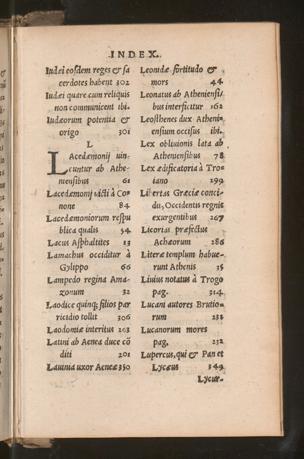 INDEX.
Iudæi eosdem reges & sa
cerdotes habent 302
Iudæi quare cum reliquis
non communicent ibi.
Iudæorum potentia &
origo 301
L
Lacedæmonij uin-
cuntur ab Athe-
niensibus 61
Lacedæmonij uicti à Co-
none 84
Lacedæmoniorum respu
blica qualis 54
Lacus Asphaltites 13
Lamachus occiditur à
Gylippo 66
Lampedo regina Ama-
zonum 32
Laodice quinq; filios par
ricidio tollit 306
Laodomiæ interitus 203
Latini ab Aenea duce cõ
diti 201
Lauinia uxor Aeneæ 350
Leonidæ fortitudo &
mors 44
Leonatus ab Atheniensi-
bus interficitur 162
Leosthenes dux Atheni-
ensium occisus ibi.
Lex obliuionis lata ab
Atheniensibus 78
Lex ædificatoria à Tro-
iano 299
Libertas Græciæ conci-
du, Occidentis regnis
exurgentibus 267
Licortas præfectus
Achæorum 286
Literæ templum habue-
runt Athenis 35
Liuius notatus à Trogo
pag. 314
Lucani autores Brutio-
rum 231
Lucanorum mores
pag. 232
Lupercus, qui & Pan et
Lycæus 349
Lycur-